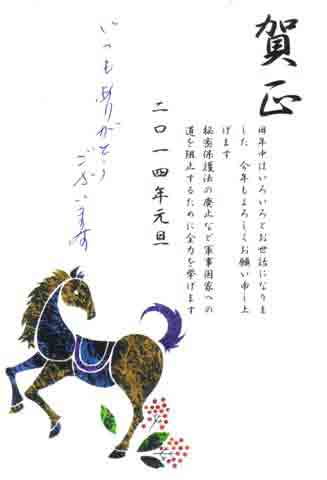 賀正
旧年中はいろいろとお世話になりま
した 今年もよろしくお願い申し上
げます
秘密保護法の廃止など軍事国家への
道を阻止するために全力を挙げます
二〇一四年元旦
いつもありがとう
ございます